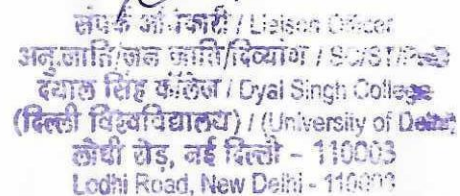 संपर्क अधिकारी / Liaison Officer
अनु.जाति/जन जाति/दिव्यांग / SC/ST/PwD
दयाल सिंह कॉलेज / Dyal Singh College
(दिल्ली विश्वविद्यालय) / (University of Delhi)
लोधी रोड, नई दिल्ली - 110003
Lodhi Road, New Delhi - 110003